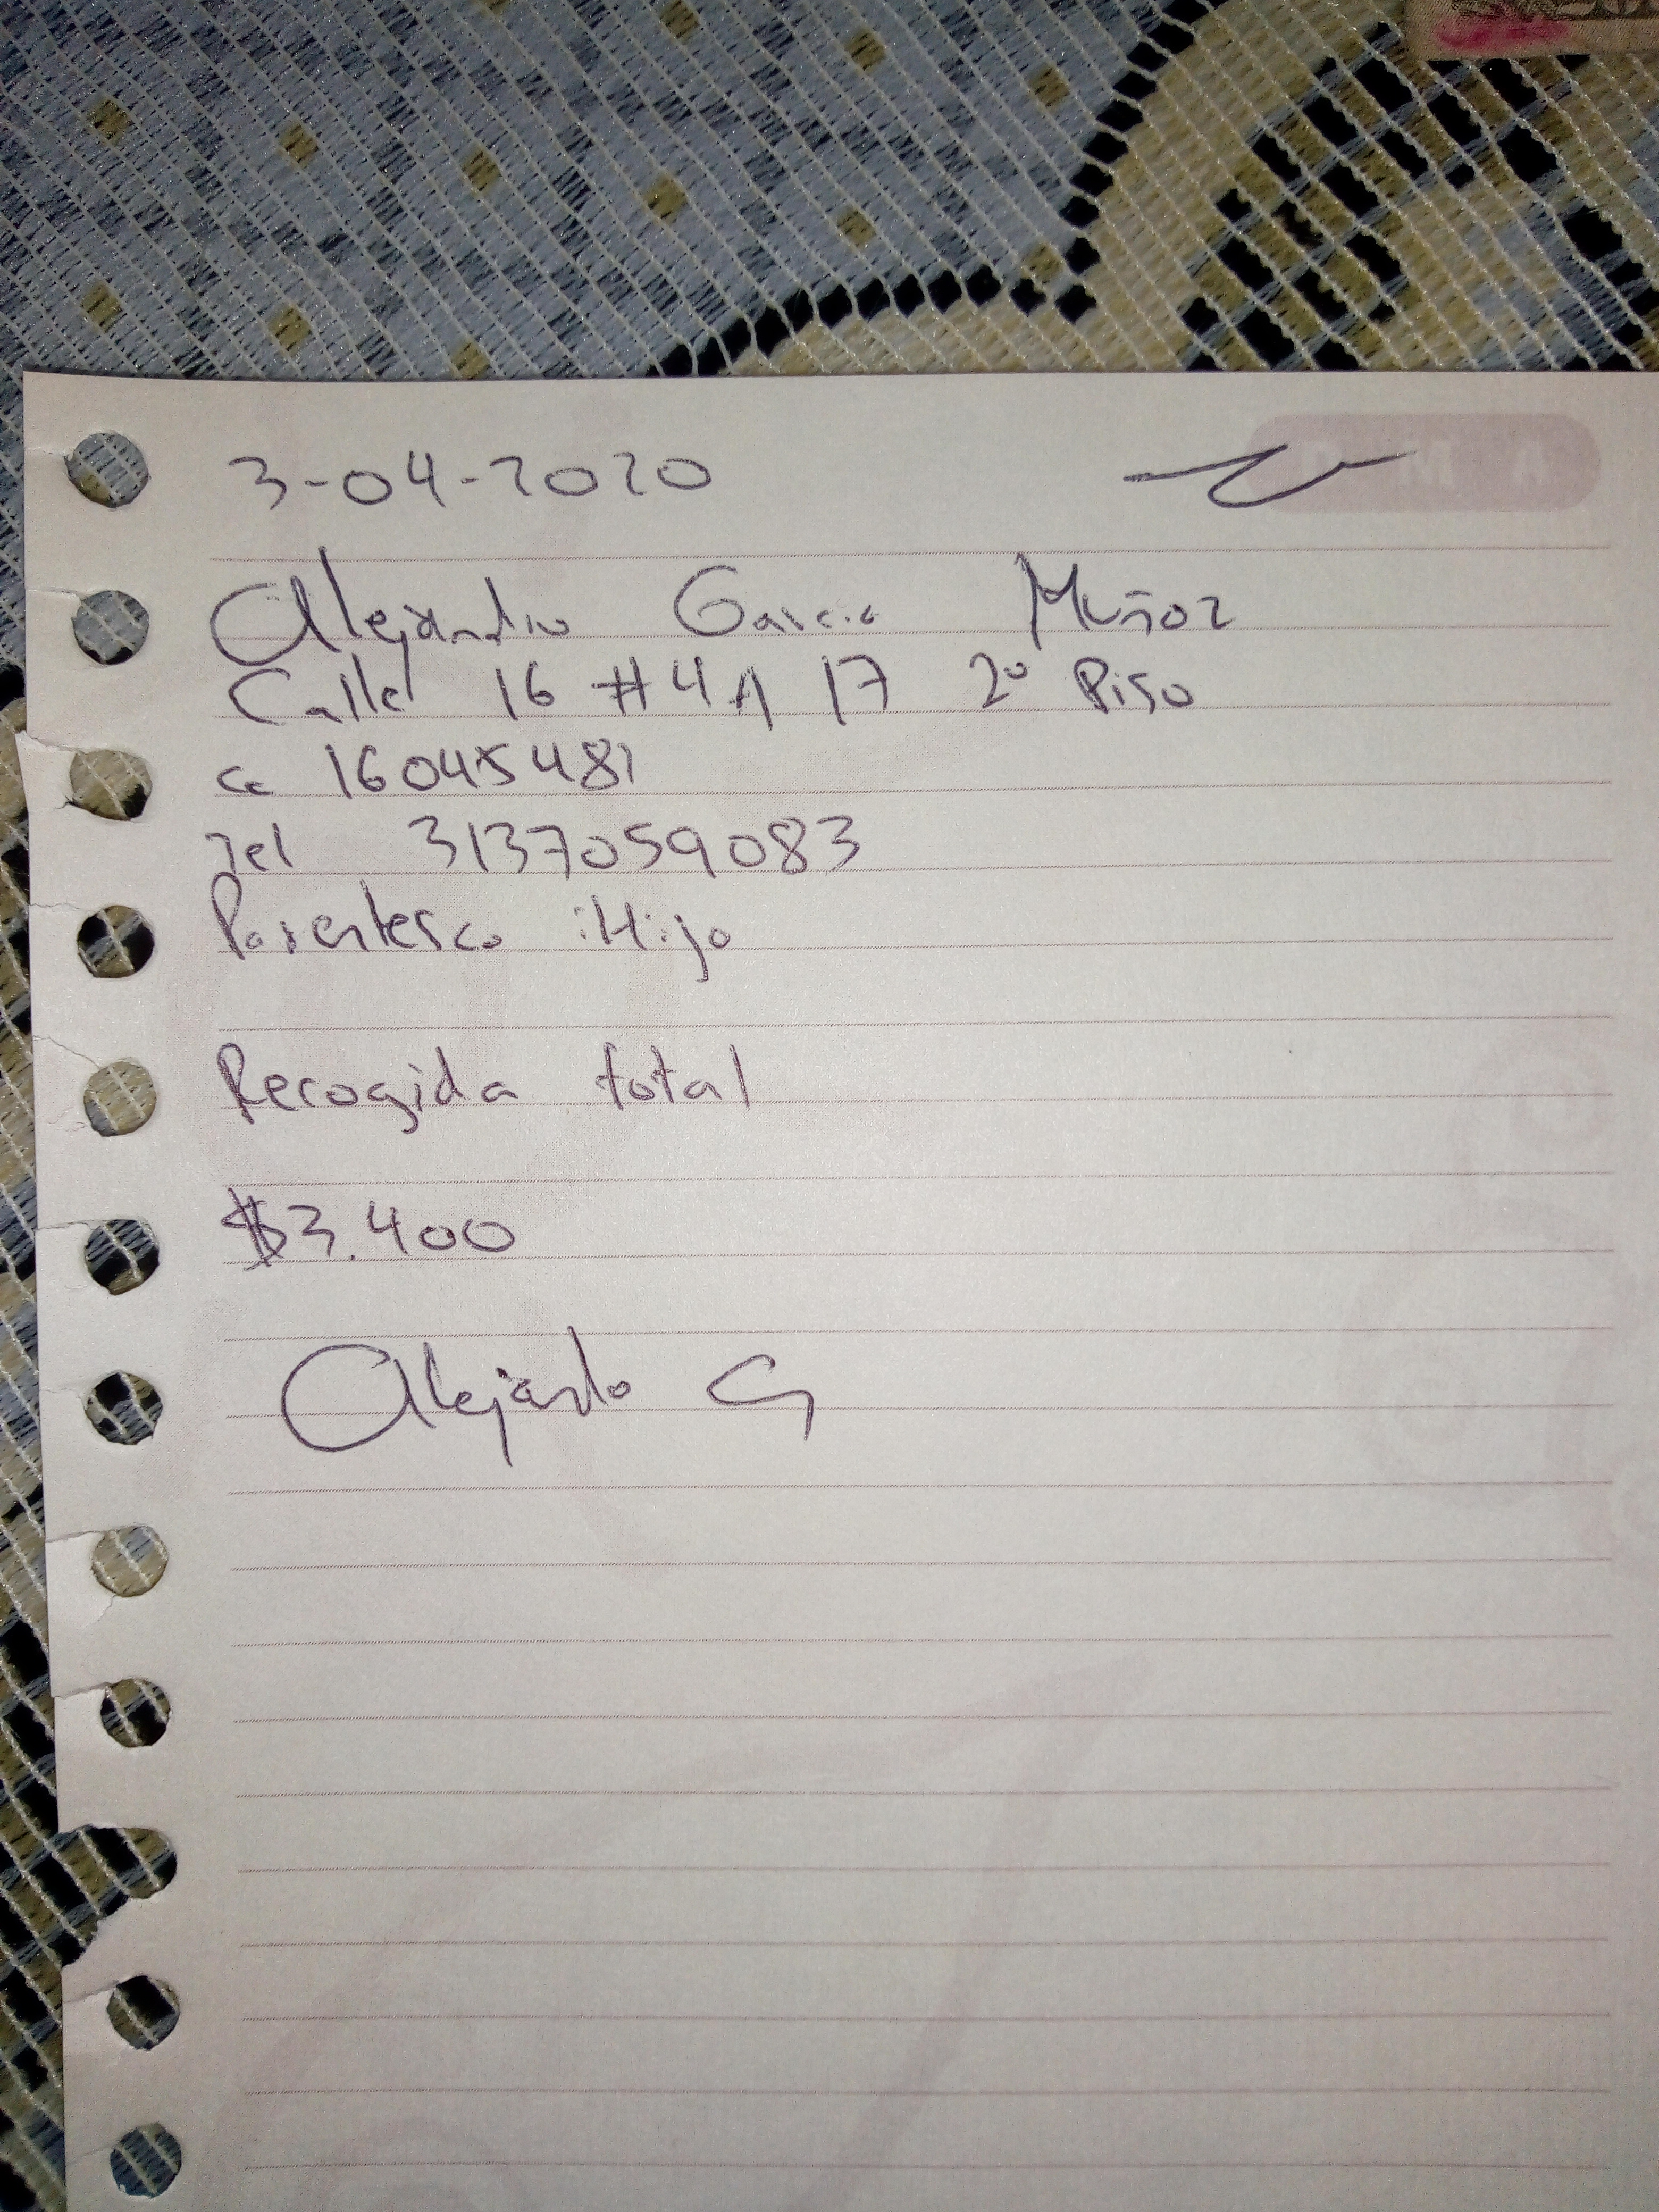 3-04-2020
Alejandro Garcia Muñoz
Calle 16 #4A 17 2º Piso
cc 16045481
Tel 3137059083
Parentesco : Hijo
Recogida total
$3.400
Alejandro G